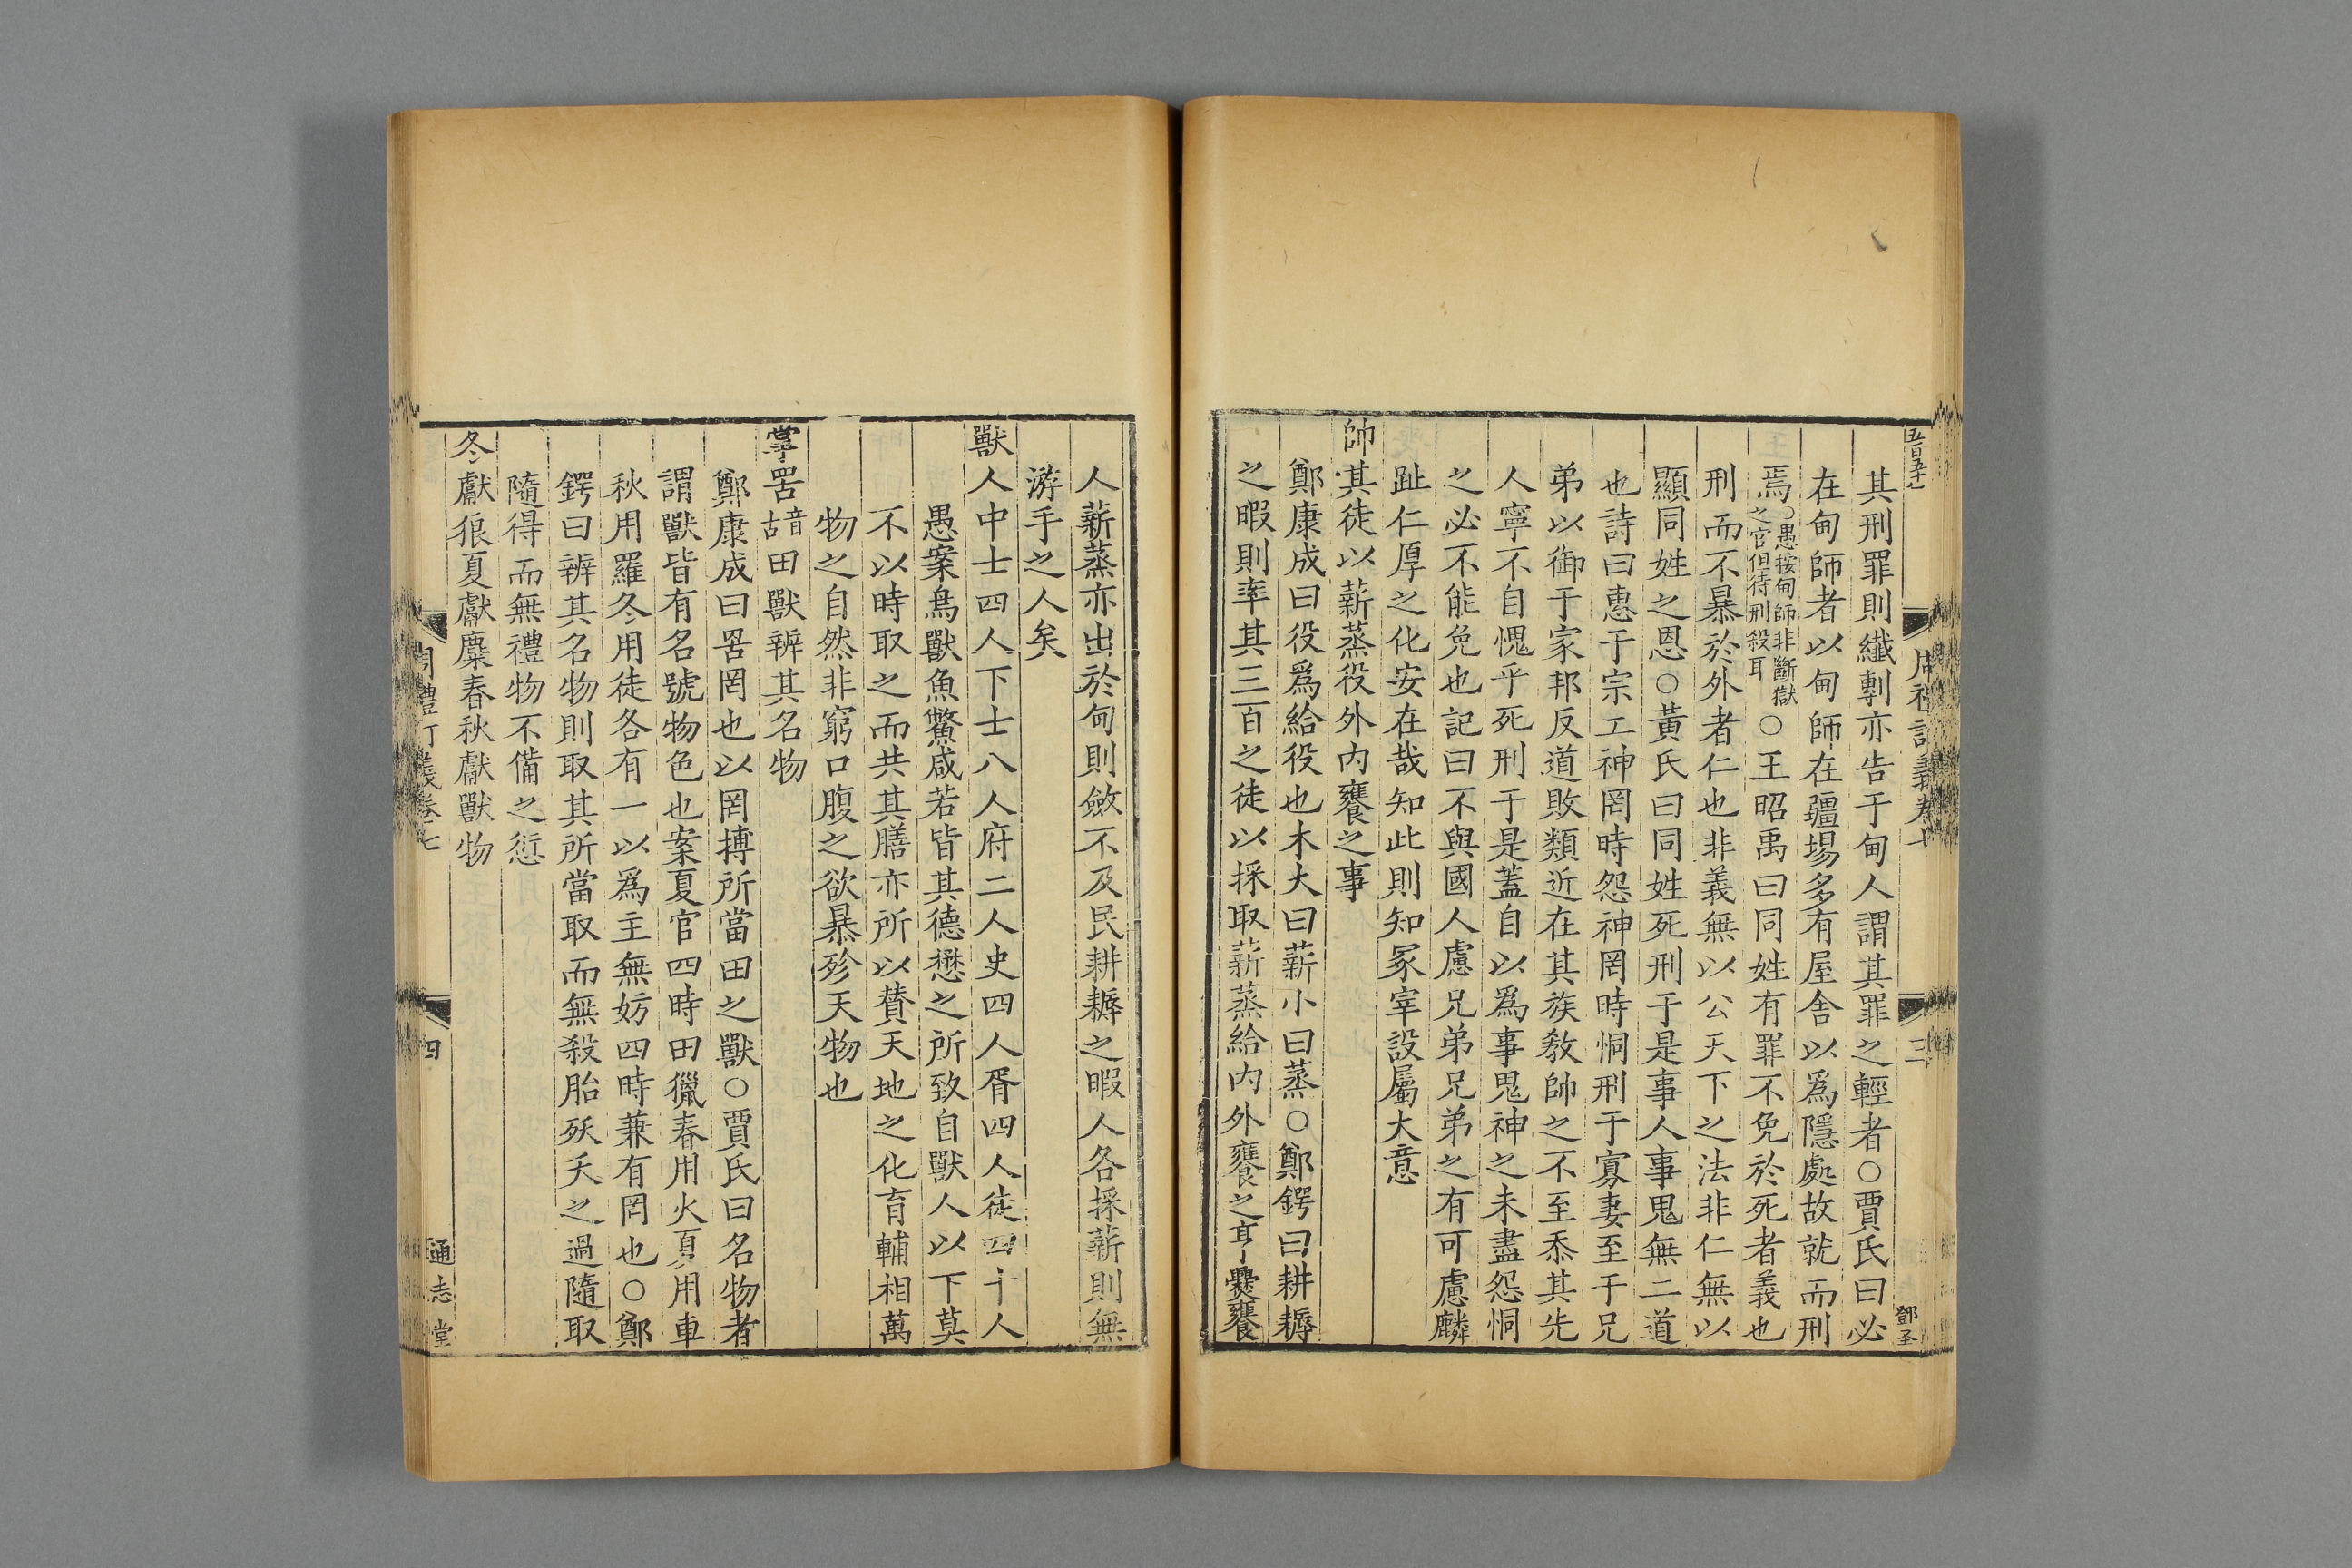 五百五十八
周禮訂義卷七
三
鄧圣
其刑罪則纖剸亦告于甸人謂其罪之輕者○賈氏曰必
在甸師者以甸師在疆場多有屋舍以爲隱處故就而刑
焉○愚按甸師非斷獄之官但待刑殺耳○王昭禹曰同姓有罪不免於死者義也
刑而不暴於外者仁也非義無以公天下之法非仁無以
顯同姓之恩○黃氏曰同姓死刑于是事人事鬼無二道
也詩曰惠于宗工神罔時怨神罔時恫刑于寡妻至于兄
弟以御于家邦反道敗類近在其族教帥之不至忝其先
人寧不自愧乎死刑于是蓋自以爲事鬼神之未盡怨恫
之必不能免也記曰不與國人慮兄弟兄弟之有可慮麟
趾仁厚之化安在哉知此則知冢宰設屬大意
帥其徒以薪蒸役外內饔之事
鄭康成曰役爲給役也木大曰薪小曰蒸○鄭鍔曰耕耨
之暇則率其三百之徒以採取薪蒸給內外饔之亨爨饔
人薪蒸亦出於甸則斂不及民耕耨之暇人各採薪則無
游手之人矣
獸人中士四人下士八人府二人史四人胥四人徒四十人
愚案鳥獸魚鱉咸若皆其德懋之所致自獸人以下莫
不以時取之而共其膳亦所以贊天地之化育輔相萬
物之自然非窮口腹之欲暴殄天物也
掌罟音古田獸辨其名物
鄭康成曰罟罔也以罔搏所當田之獸○賈氏曰名物者
謂獸皆有名號物色也案夏官四時田獵春用火夏用車
秋用羅冬用徒各有一以爲主無妨四時兼有罔也○鄭
鍔曰辨其名物則取其所當取而無殺胎殀夭之過隨取
隨得而無禮物不備之愆
冬獻狼夏獻麋春秋獻獸物
周禮訂義卷七
四
通志堂